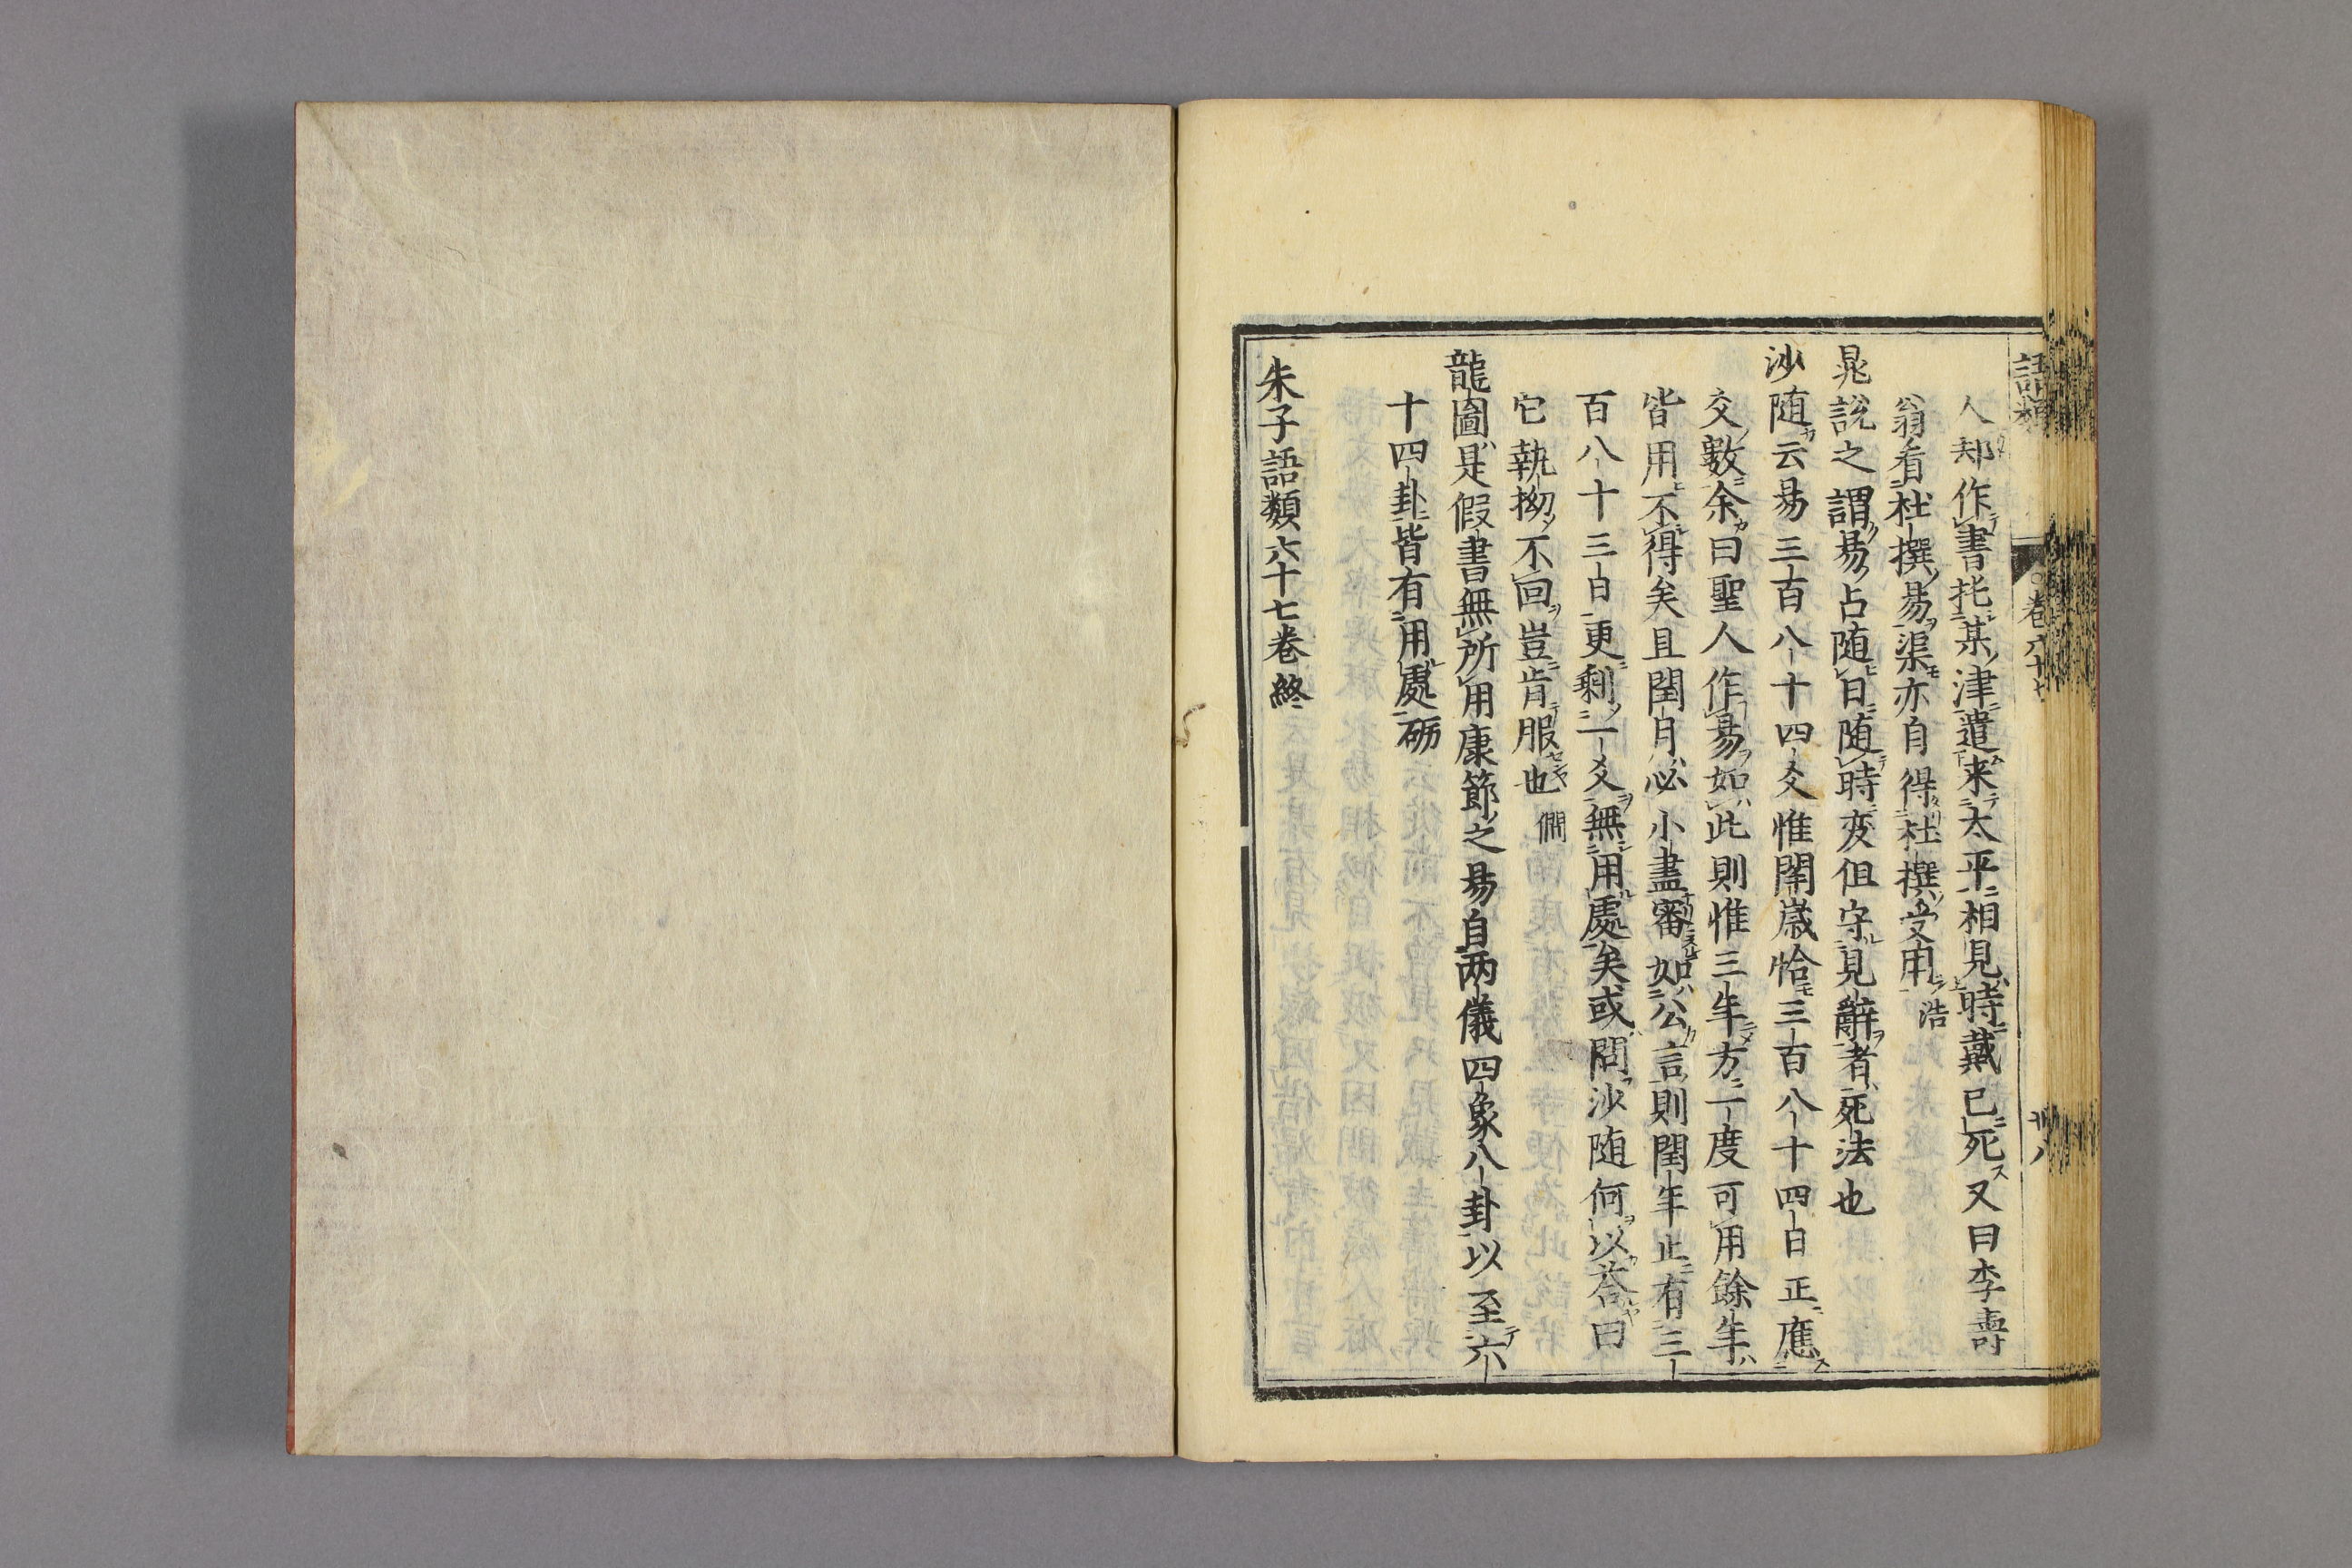 語類
○卷六十七
廿八
人却作書托某津遣来太平相見時戴已死又曰李壽
翁看杜撰易渠亦自得杜撰受用 浩
晁說之謂易占随日随時变但守見辭者死法也
沙随云易三百八十四爻惟閏歳恰三百八十四日正應
交數余曰聖人作易如此則惟三年方一度可用餘年
皆用不得矣且閏月必小盡審如公言則閏年止有三
百八十三日更剩一爻無用處矣或問沙随何以荅曰
它執拗不回豈肯服也 僩
龍圖是假書無所用康節之易自两儀四象八卦以至六
十四卦皆有用處 砺
朱子語類六十七卷終